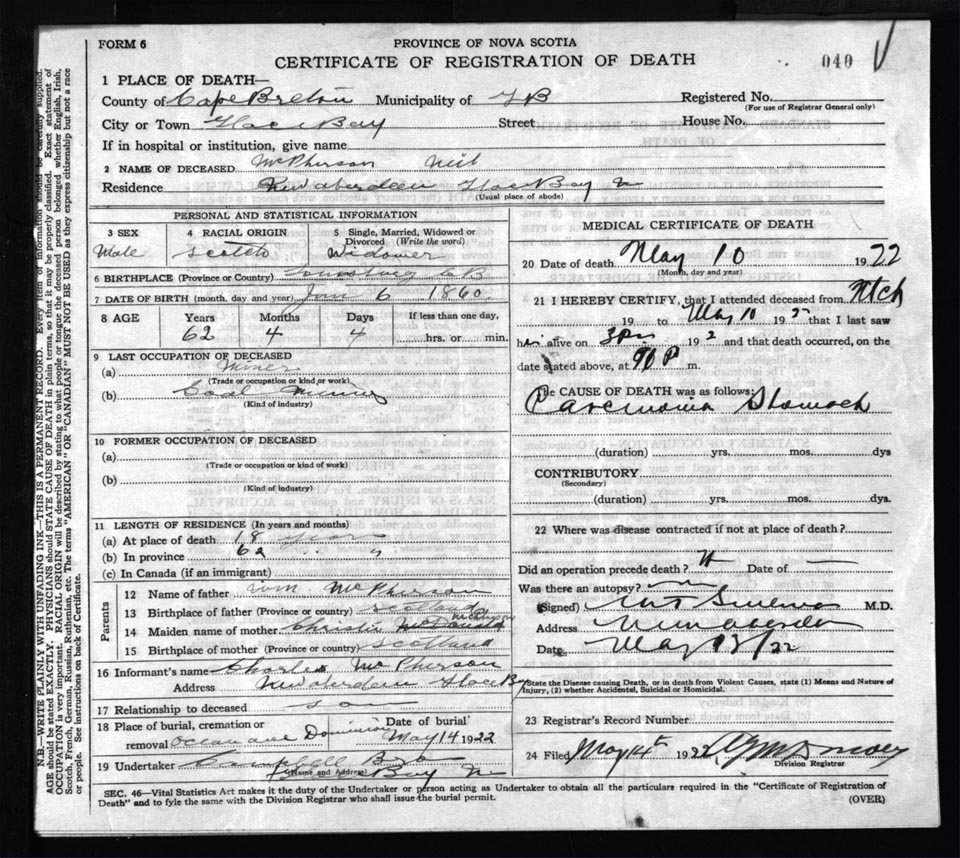 FORM 6
PROVINCE OF NOVA SCOTIA
CERTIFICATE OF REGISTRATION OF DEATH
040
1 PLACE OF DEATH—
County of Cape Breton Municipality of G B Registered No.
(For use of Registrar General only)
City or Town Glace Bay Street House No.
If in hospital or institution, give name
2 NAME OF DECEASED McPherson Neil
Residence New Aberdeen Glace Bay
(Usual place of abode)
PERSONAL AND STATISTICAL INFORMATION
3 SEX 4 RACIAL ORIGIN 5 Single, Married, Widowed or
Divorced (Write the word)
Male Scotch Widower
6 BIRTHPLACE (Province or Country) Louisburg CB
7 DATE OF BIRTH (month, day and year) Jan 6 1860
8 AGE Years Months Days If less than one day,
62 4 4 hrs. or min.
9 LAST OCCUPATION OF DECEASED
(a) Miner
(Trade or occupation or kind of work)
(b) Coal Mining
(Kind of industry)
10 FORMER OCCUPATION OF DECEASED
(a)
(Trade or occupation or kind of work)
(b)
(Kind of industry)
11 LENGTH OF RESIDENCE (In years and months)
(a) At place of death 18 years
(b) In province 62 "
(c) In Canada (if an immigrant)
Parents
12 Name of father Wm. McPherson
13 Birthplace of father (Province or country) Scotland
14 Maiden name of mother Christie McDonald
15 Birthplace of mother (Province or country) Scotland
16 Informant's name Charles McPherson
Address New Aberdeen Glace Bay
17 Relationship to deceased son
18 Place of burial, cremation or Date of burial
removal Ocean ave Dominion May 14 1922
19 Undertaker Campbell
(Name and Address) Bay
MEDICAL CERTIFICATE OF DEATH
20 Date of death May 10 1922
(Month, day and year)
21 I HEREBY CERTIFY, that I attended deceased from Mch
19 to May 10 192 that I last saw
h alive on 192 and that death occurred, on the
date stated above, at m.
The CAUSE OF DEATH was as follows:
Stomach
(duration) yrs. mos. dys
CONTRIBUTORY
(Secondary)
(duration) yrs. mos. dys.
22 Where was disease contracted if not at place of death?
Did an operation precede death? Date of —
Was there an autopsy?
(Signed) M.D.
Address New Aberdeen
Date May /22
State the Disease causing Death, or in death from Violent Causes, state (1) Means and Nature of
Injury, (2) whether Accidental, Suicidal or Homicidal.
23 Registrar's Record Number
24 Filed May 14th 1922
Division Registrar
SEC. 46—Vital Statistics Act makes it the duty of the Undertaker or person acting as Undertaker to obtain all the particulars required in the "Certificate of Registration of
Death" and to fyle the same with the Division Registrar who shall issue the burial permit.
(OVER)
N.B.—WRITE PLAINLY WITH UNFADING INK—THIS IS A PERMANENT RECORD. Every item of information should be carefully supplied.
AGE should be stated EXACTLY. PHYSICIANS should STATE CAUSE OF DEATH in plain terms, so that it may be properly classified. Exact statement of
OCCUPATION is very important. RACIAL ORIGIN will be described by stating to what people or tongue the deceased person belonged, whether English, Irish,
Scotch, French, German, Russian, Ruthenian, etc. The terms "AMERICAN" OR "CANADIAN" MUST NOT BE USED as they express citizenship but not a race
or people. See instructions on back of Certificate.